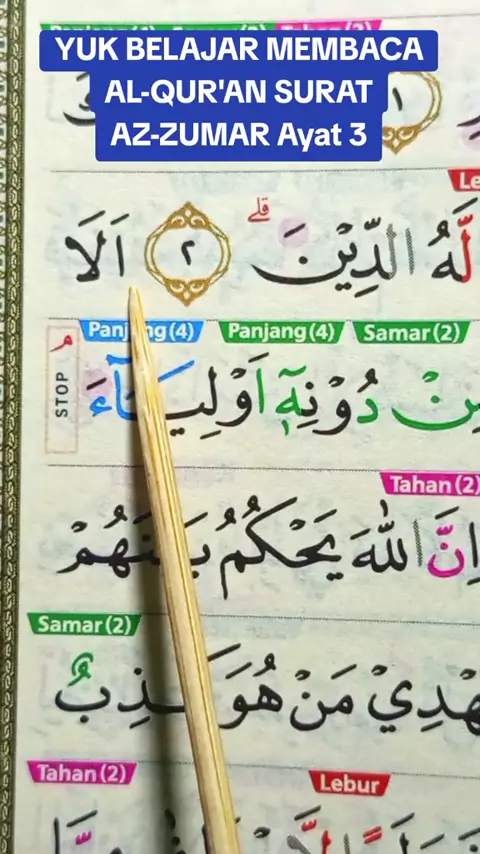 YUK BELAJAR MEMBACA
AL-QUR'AN SURAT
AZ-ZUMAR Ayat 3
١
Le
لَّهُ الدِّيْنَ ۗ ٢ اَلَا
Panjang(4) Panjang(4) Samar(2)
STOP
مِنْ دُوْنِهٖٓ اَوْلِيَآءَ ۘ
Tahan(2)
اِنَّ اللّٰهَ يَحْكُمُ بَيْنَهُمْ
Samar(2)
يَهْدِيْ مَنْ هُوَ كٰذِبٌ
Tahan(2) Lebur